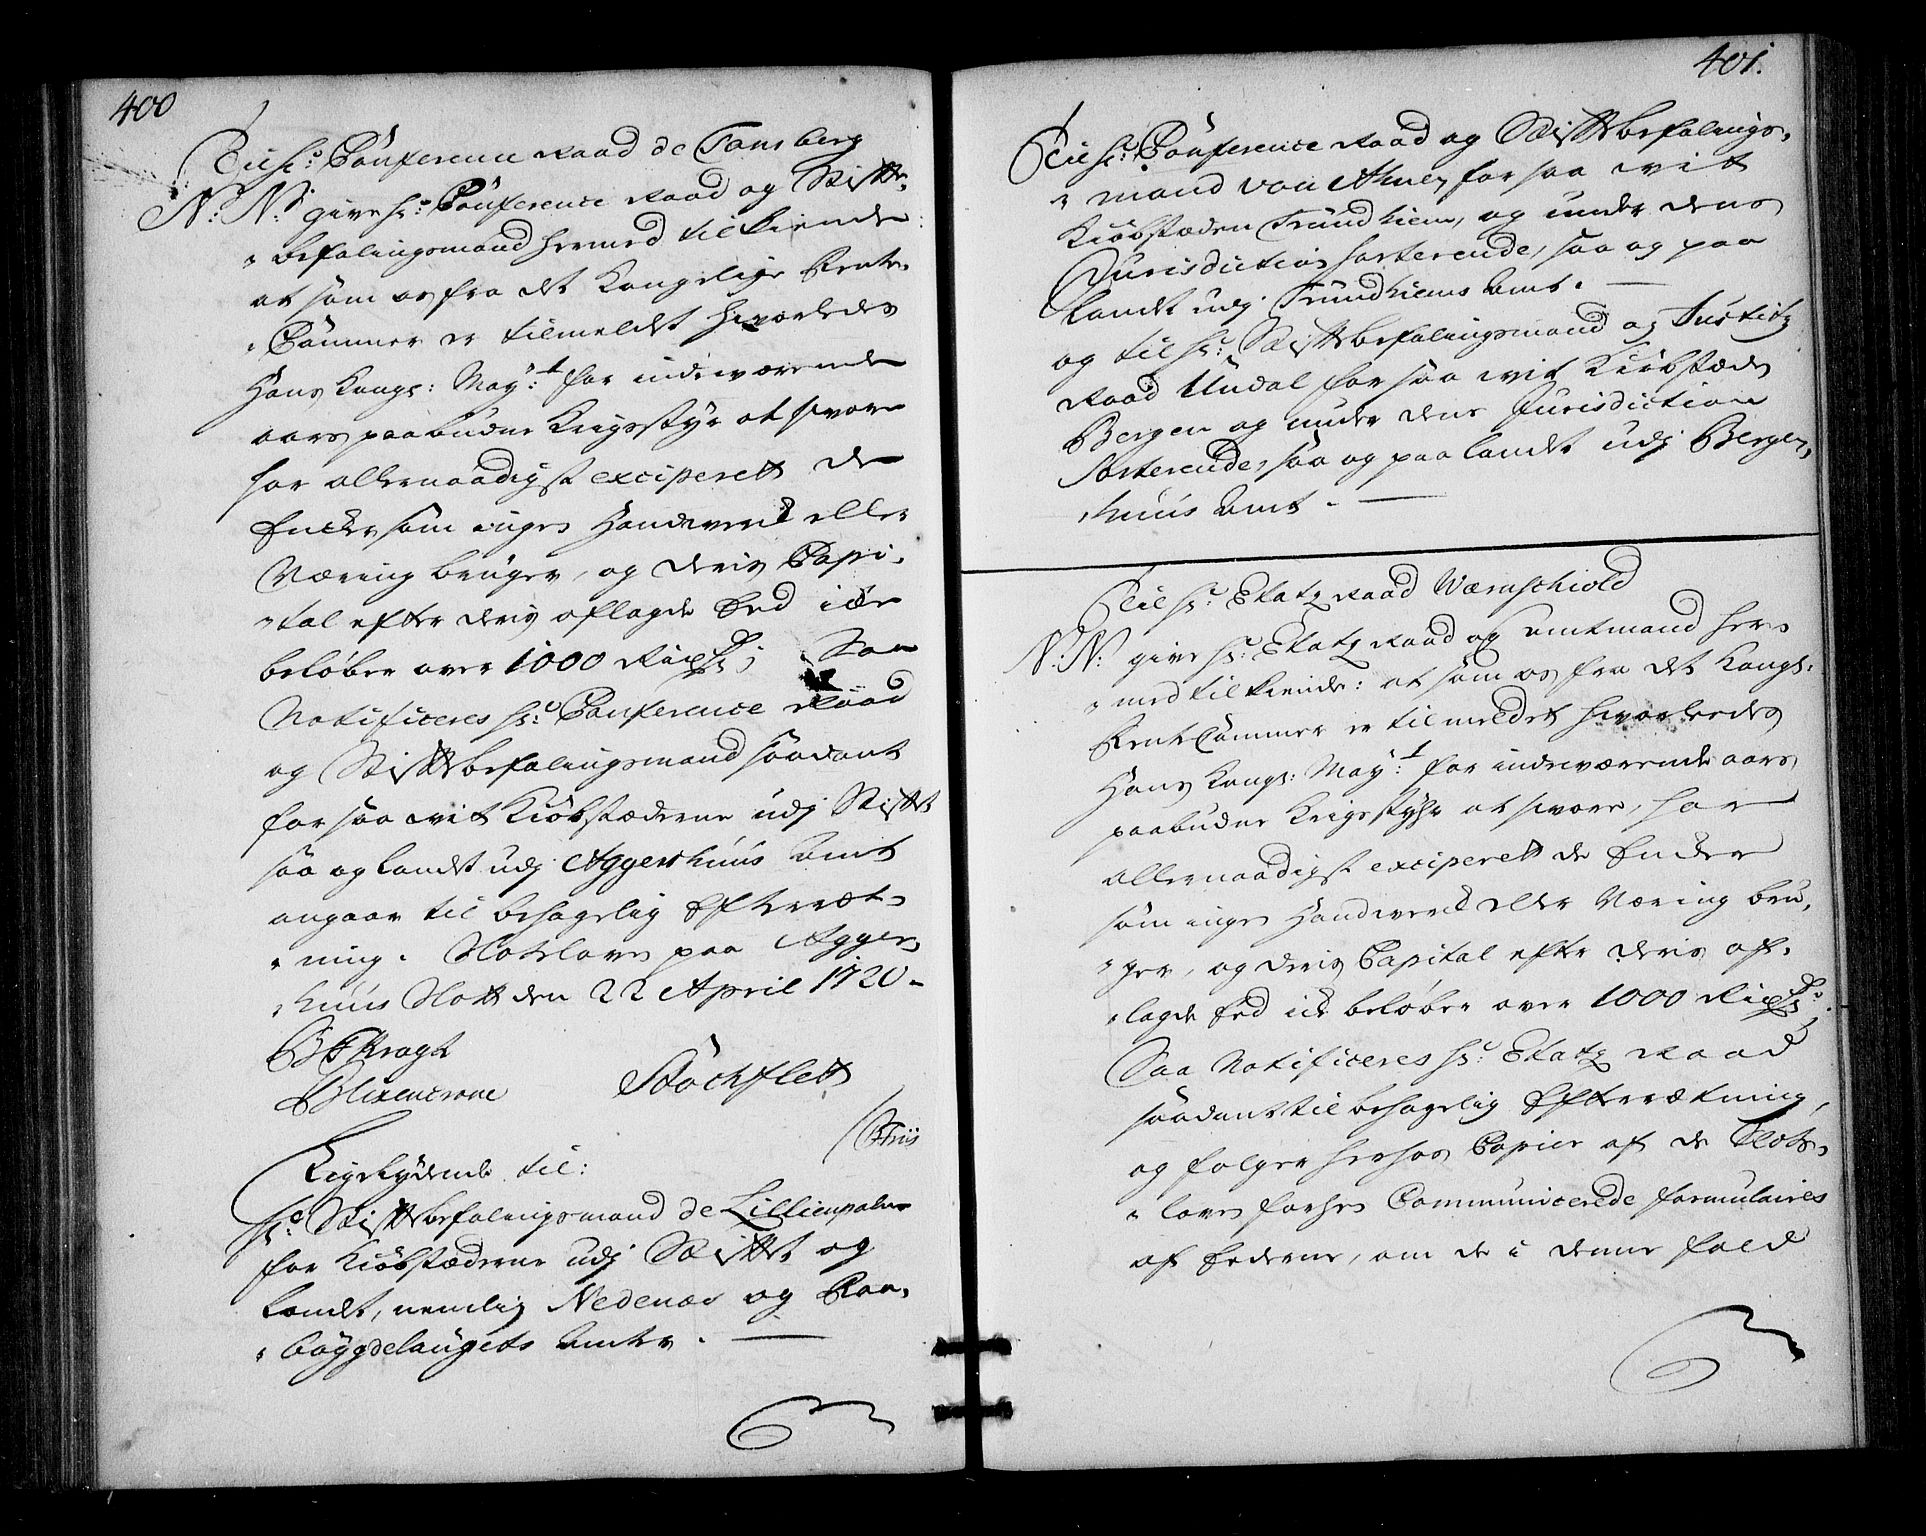 400
Til hr: Conference Raad de Tonsberg
N: N: give hr: Conference Raad og Stifts
befalingsmand hermed tilkiende
at som os fra det Kongelige Rente
Cammer er tilmeldet hvorledes
Hans Kongl: May:t for indeværende
aars paabudne Krigsstyr at svare
har allernaadigst exciperett de
Encker som ingen Handverck eller
Næring bruger, og deris Capi-
tal efter deris aflagde Eed icke
beløber over 1000 Rixdr; Saa
Notificeres hr: Conference Raad
og Stiftbefalingsmand saadant
for saa vit Kiøbstæderne udj Stiftet
saa og Landet udj Aggershuus Amt
angaar til behagelig Efterræt-
ning. Slotsloven paa Agger-
huus Slott den 22 April 1720.
B F Kragh
Blixencrone Stöckflett
/Friis
Ligelydende til:
hr: Stiftbefalingsmand de Lillienpalm
for Kiøbstæderne udj Stiftet og
Landet, nemlig Nedenæs og Raa-
bøygdelaugets Amter.
401.
Til hr: Conference Raad og Stiftbefalings-
mand von Ahnen for saa vit
Kiøbstæden Trundhiem, og under dens
Jurisdiction sorterende, saa og paa
Landet udj Trundhiems Amt.
og til hr: Stiftbefalingsmand og Justitz
Raad Undal for saa vit Kiøbstæden
Bergen og under dens Jurisdiction
Sorterende, saa og paa Landet udj Bergen-
huus Amt.
Til hr: Etatz Raad Wærnschiold
N: N: give hr: Etatz Raad og Amtmand her-
med tilkiende: at som os fra det Kongl:
Rente Cammer er tilmeldet hvorledes
Hans Kongl: May:t for indeværende aars
paabudne Krigsstyhr at svare, har
allernaadigst exciperett de Encker
som ingen Handverck eller Næring bru-
ger, og deris Capital efter deris af-
lagde Eed icke beløber over 1000 Rixdr:
Saa Notificeres hr: Etatz Raad
saadant til behagelig Efterrætning,
og følger herhos Copier af de Slots-
loven forhen Communicerede formulaires
af Eederne, om de i denne fald